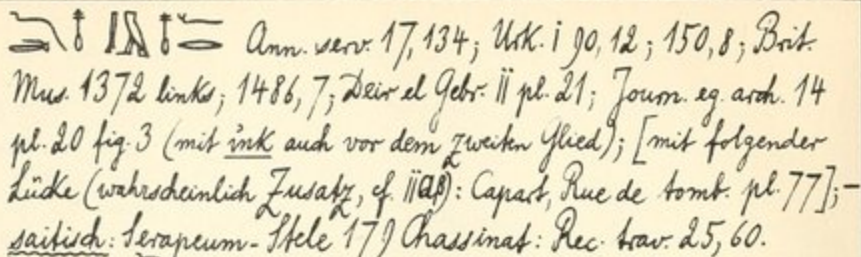 Ann. serv. 17, 134; Urk. I 90, 12; 150, 8; Brit.
Mus. 1372 links; 1486, 7; Deir el Gebr. II pl. 21; Journ. eg. arch. 14
pl. 20 fig. 3 (mit ink auch vor dem zweiten Glied); [mit folgender
Lücke (wahrscheinlich Zusatz, cf. II aβ): Capart, Rue de tomb. pl. 77]; –
saitisch: Serapeum-Stele 179 Chassinat: Rec. trav. 25, 60.